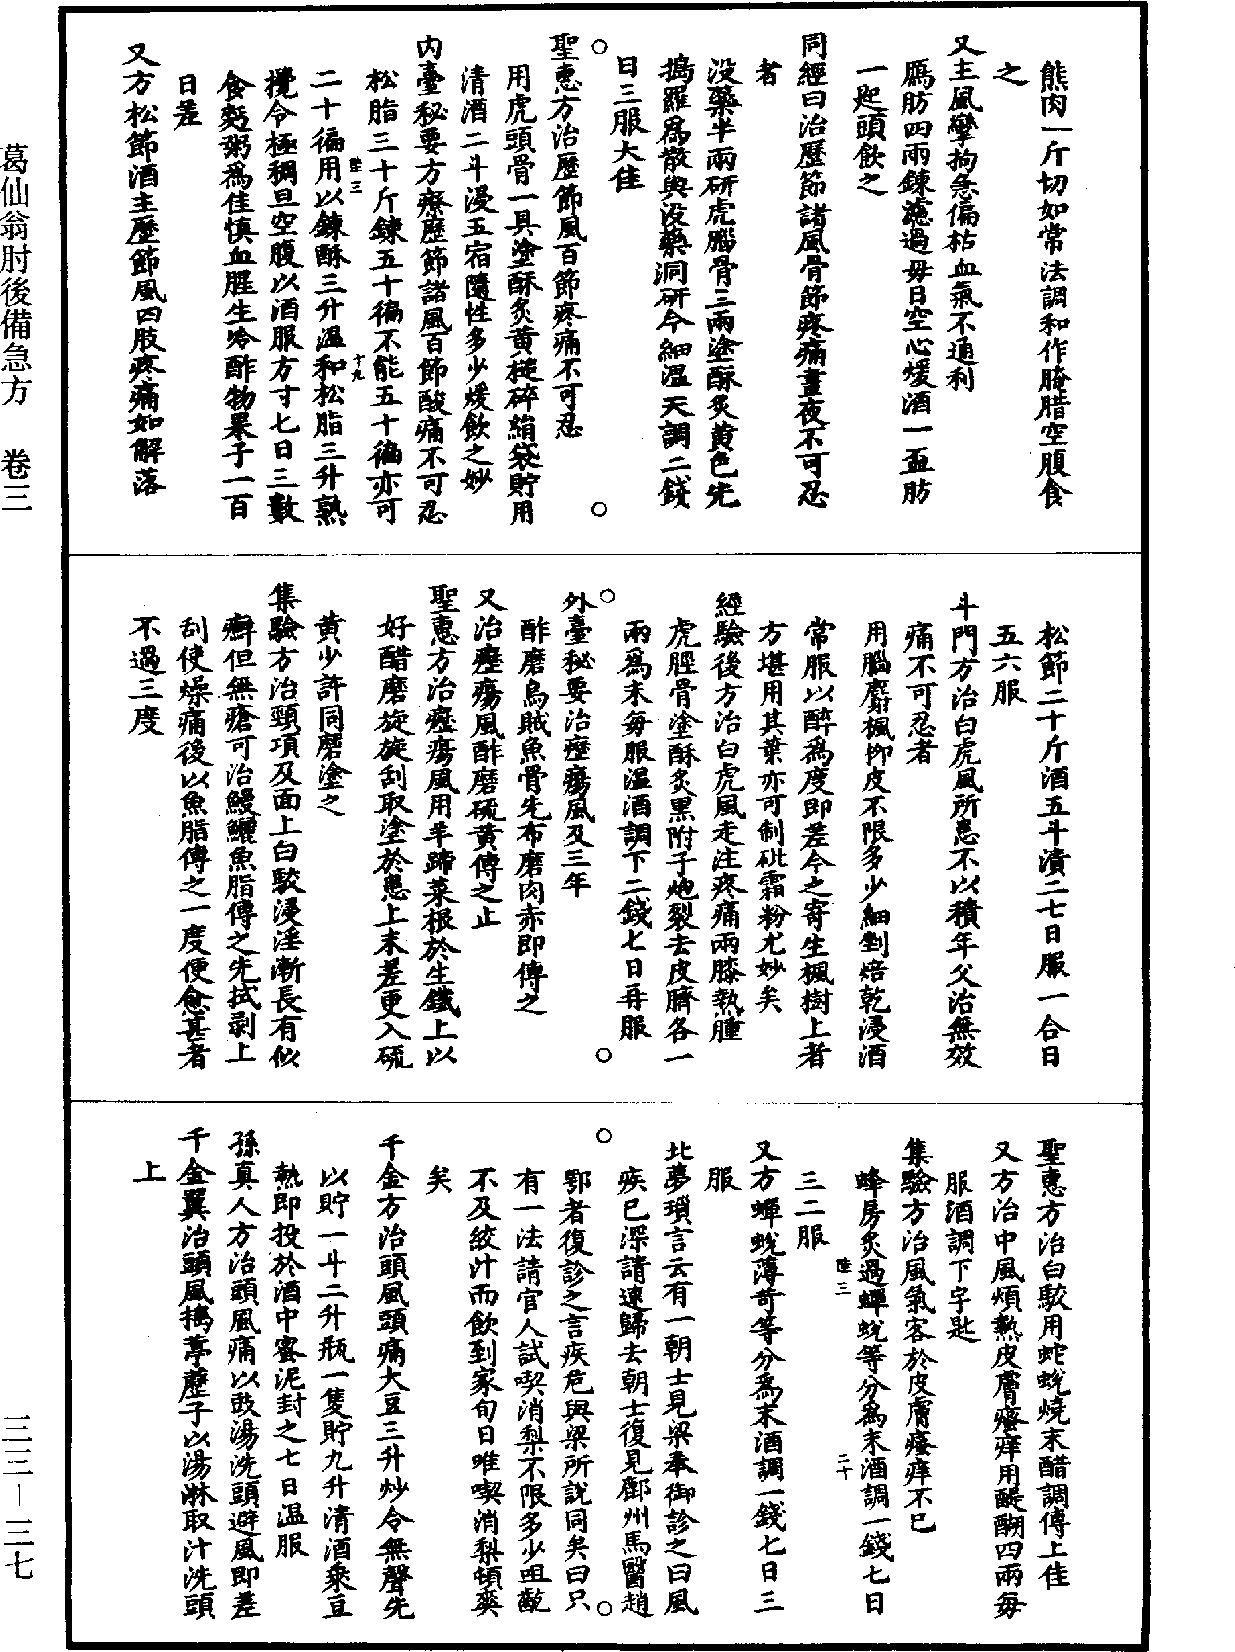 葛仙翁肘後備急方　卷三
三三—三七
熊肉一斤切如常法調和作腌腊空腹食
之
又主風攣拘急偏枯血氣不通利
鴈肪四兩鍊濾過每日空心煖酒一盃肪
一匙頭飲之
同經曰治歷節諸風骨節疼痛晝夜不可忍
者
没藥半兩研虎腦骨三兩塗酥炙黃色先
擣羅爲散與没藥洞研令細溫天調二錢
日三服大佳
聖惠方治歷節風百節疼痛不可忍
用虎頭骨一具塗酥炙黃槌碎絹袋貯用
清酒二斗浸五宿隨性多少煖飲之妙
内臺秘要方療歷節諸風百節酸痛不可忍
松脂三十斤鍊五十徧不能五十徧亦可
二十徧用以鍊酥三升溫和松脂三升熟
陸三
十九
攪令極稠旦空腹以酒服方寸七日三數
食麪粥爲佳慎血腥生冷酢物果子一百
日差
又方松節酒主歷節風四肢疼痛如解落
松節二十斤酒五斗漬二七日服一合日
五六服
斗門方治白虎風所患不以積年久治無效
痛不可忍者
用腦麝楓柳皮不限多少細剉焙乾浸酒
常服以醉爲度即差今之寄生楓樹上者
方堪用其葉亦可制砒霜粉尤妙矣
經驗後方治白虎風走注疼痛兩膝熱腫
虎脛骨塗酥炙黑附子炮裂去皮臍各一
兩爲末每服溫酒調下二錢七日再服
外臺秘要治癧瘍風及三年
酢磨烏賊魚骨先布磨肉赤即傅之
又治癧瘍風酢磨硫黃傅之止
聖惠方治癧瘍風用羊蹄菜根於生鐵上以
好醋磨旋旋刮取塗於患上未差更入硫
黃少許同磨塗之
集驗方治頸項及面上白駮浸淫漸長有似
癬但無瘡可治鰻鱺魚脂傅之先拭剥上
刮使燥痛後以魚脂傅之一度便愈甚者
不過三度
聖惠方治白駮用蛇蛻燒末醋調傅上佳
又方治中風煩熱皮膚瘙痒用醍醐四兩每
服酒調下字匙
集驗方治風氣客於皮膚瘙痒不已
蜂房炙過蟬蛻等分爲末酒調一錢七日
陸三
二十
三二服
又方蟬蛻薄苛等分爲末酒調一錢七日三
服
北夢瑣言云有一朝士見梁奉御診之曰風
疾已深請速歸去朝士復見鄜州馬醫趙
鄂者復診之言疾危與梁所說同矣曰只
有一法請官人試喫消梨不限多少咀齕
不及絞汁而飲到家旬日唯喫消梨頓爽
矣
千金方治頭風頭痛大豆三升炒令無聲先
以貯一斗二升瓶一隻貯九升清酒乘豆
熱即投於酒中蜜泥封之七日溫服
孫真人方治頭風痛以豉湯洗頭避風即差
千金翼治頭風擣葶藶子以湯淋取汁洗頭
上